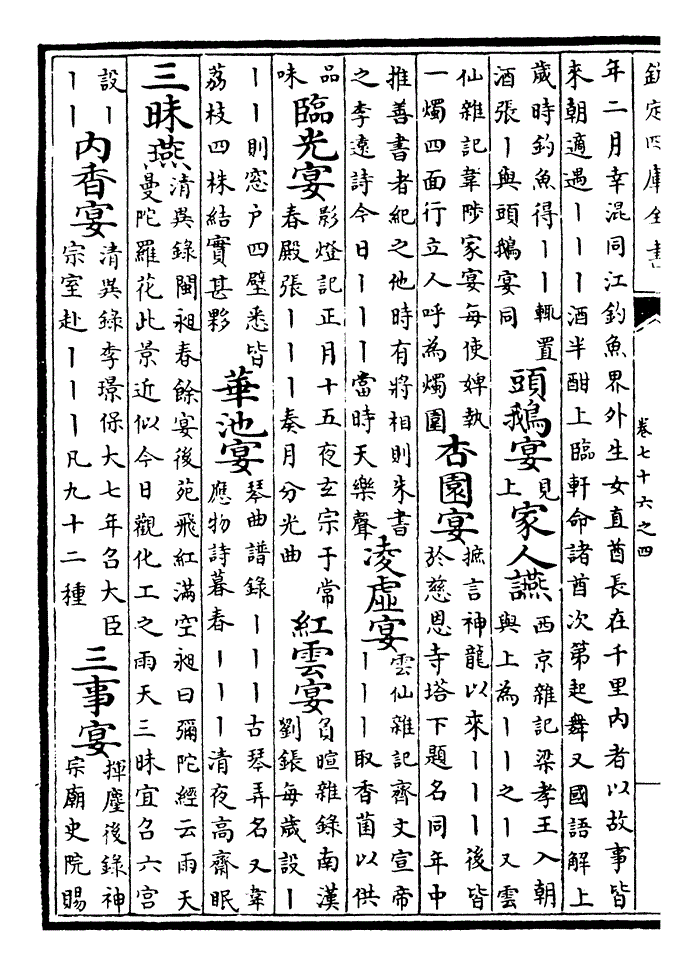 欽定四庫全書
卷七十六之四
年二月幸混同江釣魚界外生女直酋長在千里內者以故事皆
來朝適遇丨丨丨酒半酣上臨軒命諸酋次第起舞又國語解上
歲時釣魚得丨丨輒置
酒張丨與頭鵝宴同
頭鵝宴
見
上
家人讌
西京雜記梁孝王入朝
與上為丨丨之丨又雲
仙雜記韋陟家宴每使婢執
一燭四面行立人呼為燭圍
杏園宴
摭言神龍以來丨丨丨後皆
於慈恩寺塔下題名同年中
推善書者紀之他時有將相則朱書
之李遠詩今日丨丨丨當時天樂聲
凌虛宴
雲仙雜記齊文宣帝
丨丨丨取香菌以供
品
味
臨光宴
影燈記正月十五夜玄宗于常
春殿張丨丨丨奏月分光曲
紅雲宴
負暄雜錄南漢
劉鋹每歲設丨
丨丨則窓户四壁悉皆
荔枝四株結實甚夥
華池宴
琴曲譜錄丨丨丨古琴弄名又韋
應物詩暮春丨丨丨清夜高齋眠
三昧燕
清異錄閩昶春餘宴後苑飛紅滿空昶曰彌陀經云雨天
曼陀羅花此景近似今日觀化工之雨天三昧宜召六宮
設丨
丨丨
內香宴
清異錄李璟保大七年召大臣
宗室赴丨丨丨凡九十二種
三事宴
揮麈後錄神
宗廟史院賜